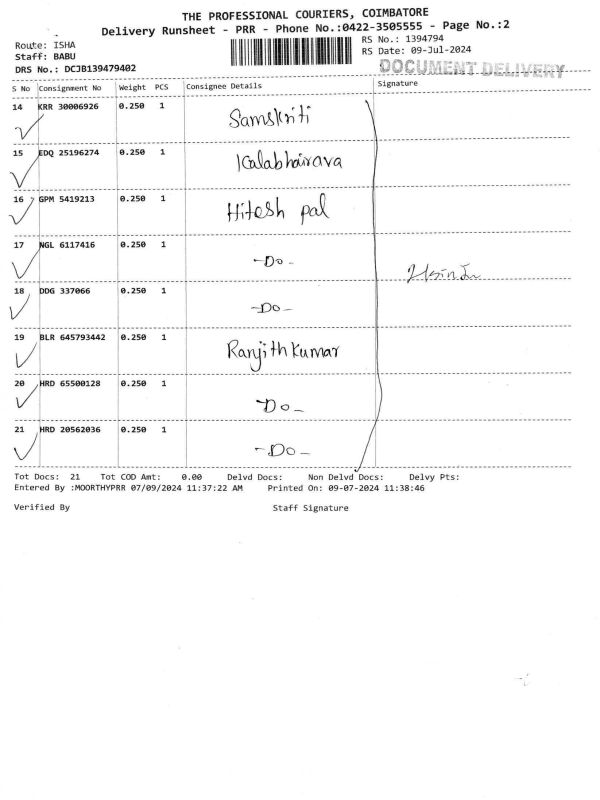 THE PROFESSIONAL COURIERS, COIMBATORE
Delivery Runsheet - PRR - Phone No.:0422-3505555 - Page No.:2
Route: ISHA
RS No.: 1394794
Staff: BABU
RS Date: 09-Jul-2024
DRS No.: DCJB139479402
DOCUMENT DELIVERY
S No Consignment No Weight PCS Consignee Details Signature
14 KRR 30006926 0.250 1 Samskriti
15 EDQ 25196274 0.250 1 Kalabhairava
16 GPM 5419213 0.250 1 Hitesh pal
17 NGL 6117416 0.250 1 -Do-
18 DDG 337066 0.250 1 -Do-
19 BLR 645793442 0.250 1 Ranjith Kumar
20 HRD 65500128 0.250 1 -Do-
21 HRD 20562036 0.250 1 -Do-
Tot Docs: 21 Tot COD Amt: 0.00 Delvd Docs: Non Delvd Docs: Delvy Pts:
Entered By :MOORTHYPRR 07/09/2024 11:37:22 AM Printed On: 09-07-2024 11:38:46
Verified By Staff Signature